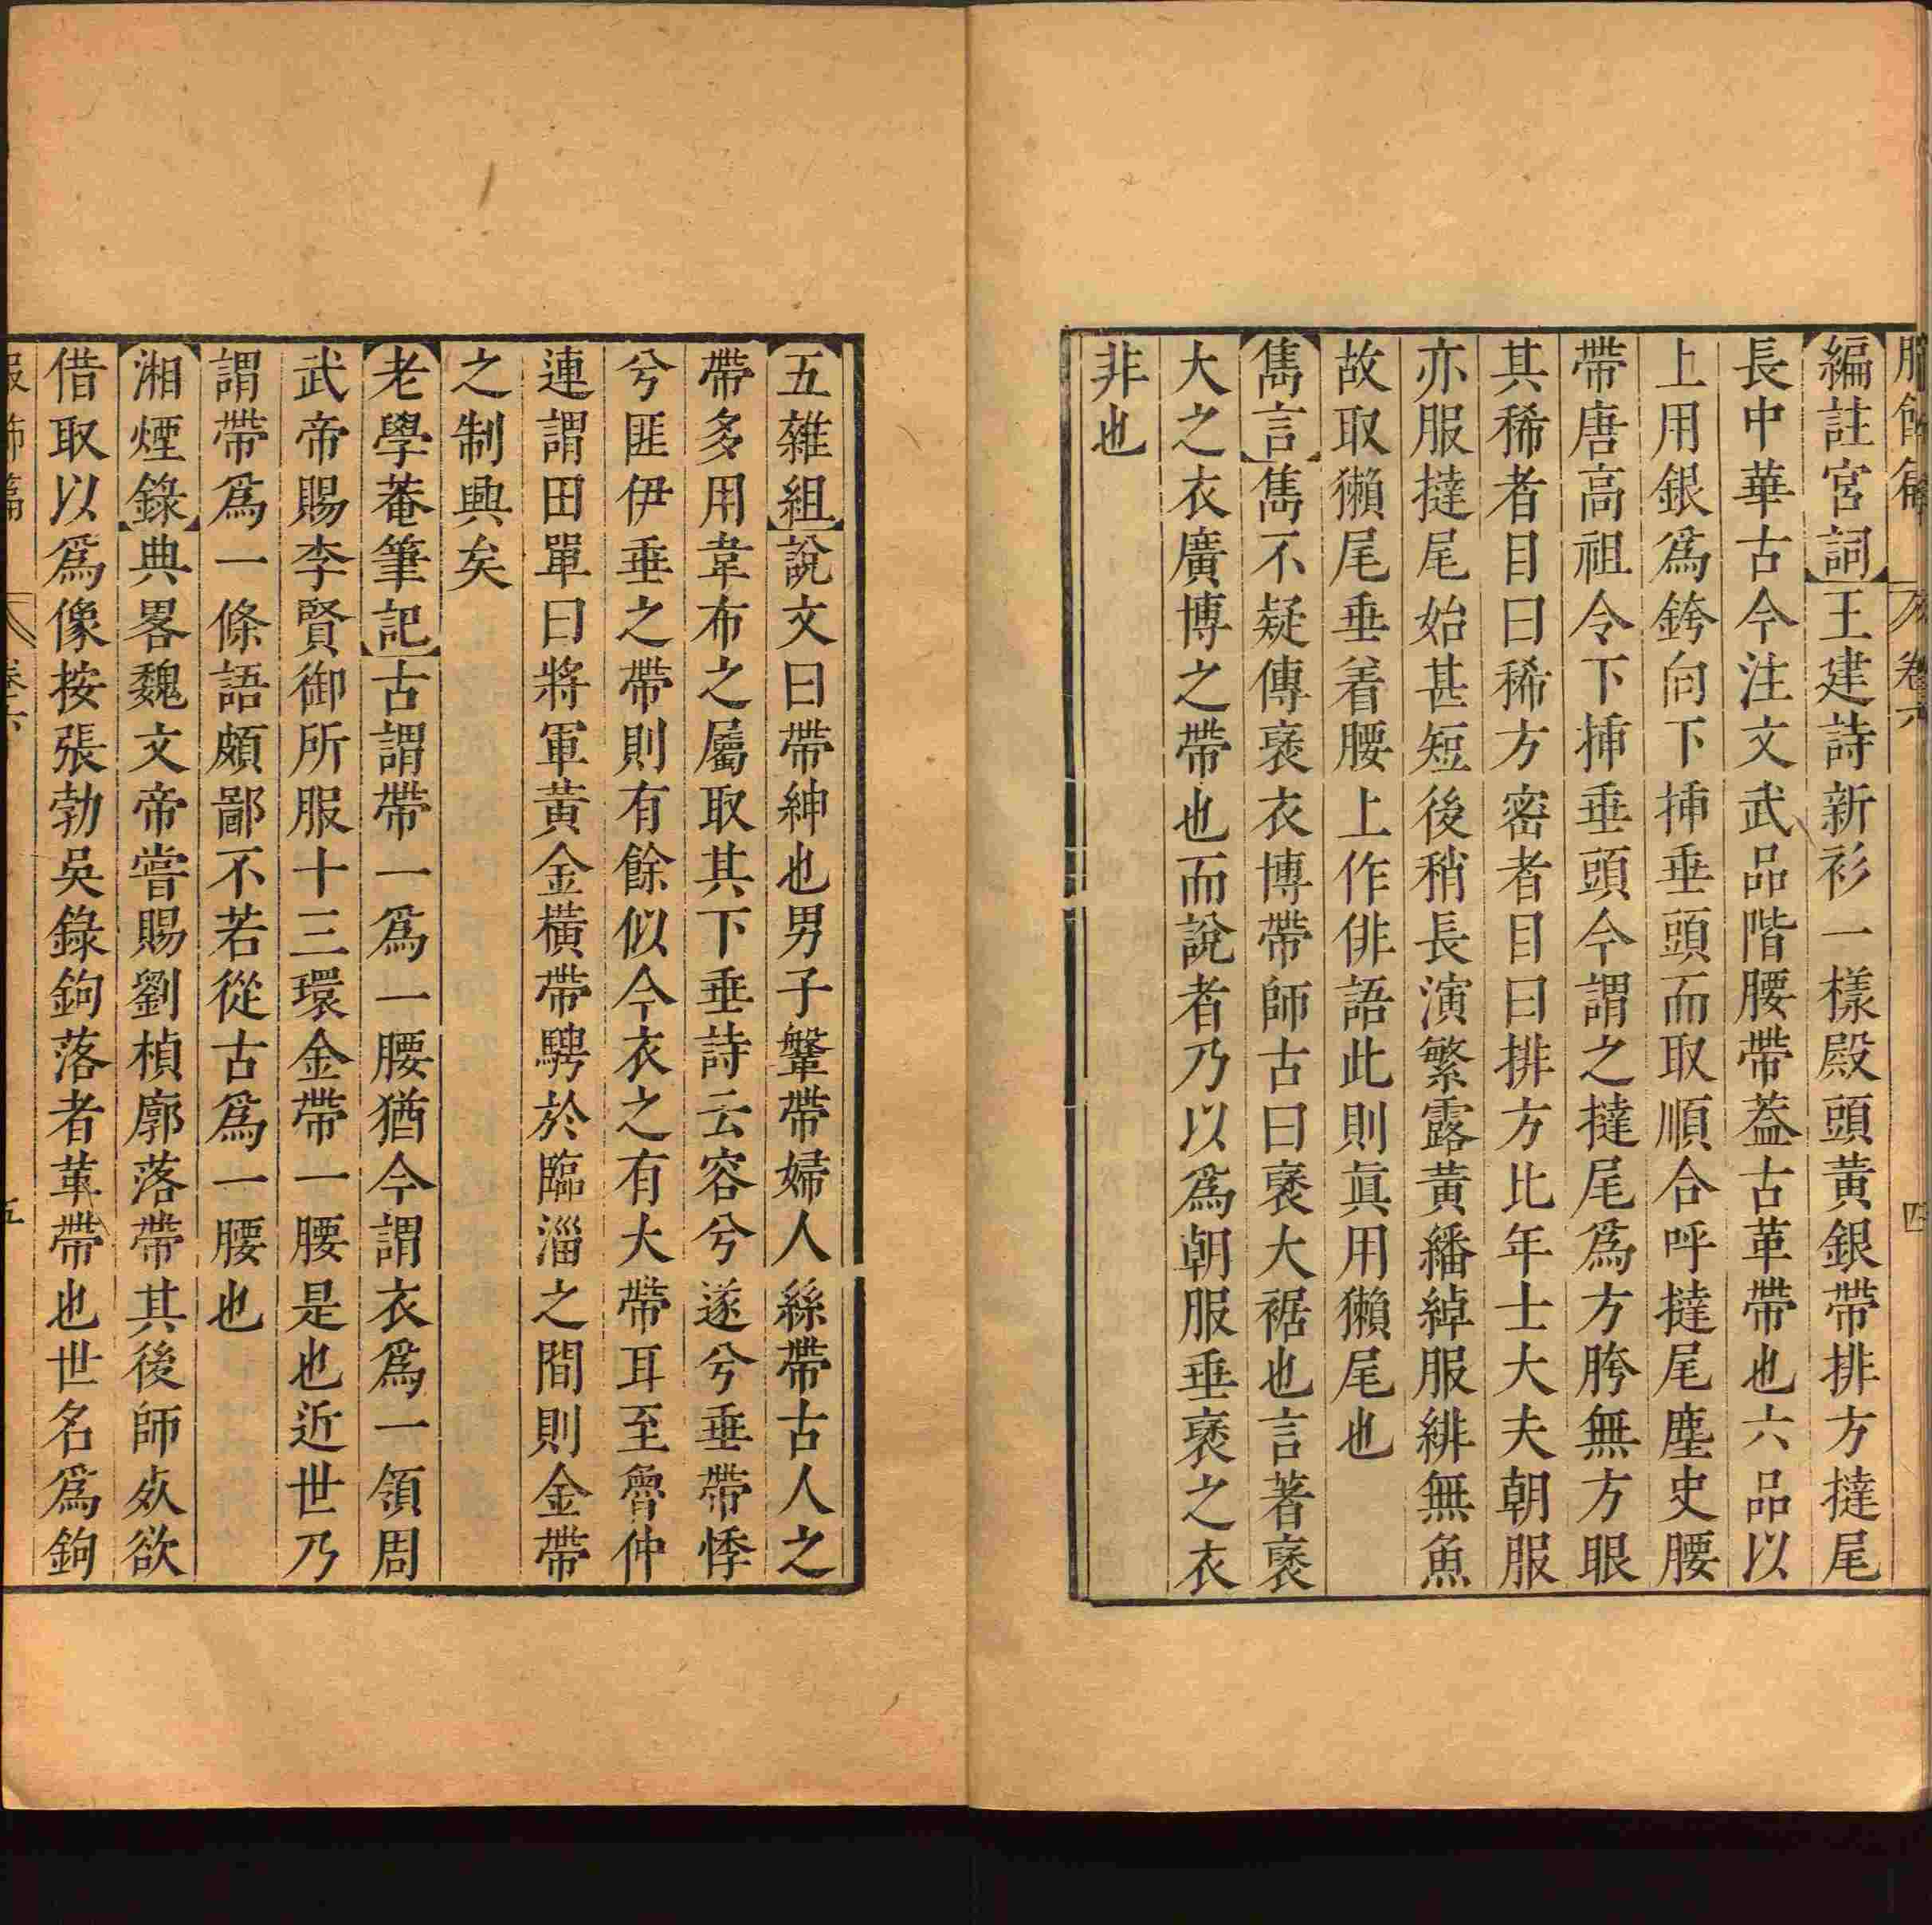 編註宮詞王建詩新衫一樣殿頭黃銀帶排方撻尾
長中華古今注文武品階腰帶葢古革帶也六品以
上用銀爲銙向下揷垂頭而取順合呼撻尾塵史腰
帶唐高祖令下揷垂頭今謂之撻尾爲方胯無方眼
其稀者目曰稀方密者目曰排方比年士大夫朝服
亦服撻尾始甚短後稍長演繁露黃繙綽服緋無魚
故取獺尾垂着腰上作俳語此則眞用獺尾也
雋言雋不疑傳襃衣博帶師古曰襃大裾也言著襃
大之衣廣博之帶也而說者乃以爲朝服垂襃之衣
非也
五雜組說文曰帶紳也男子鞶帶婦人絲帶古人之
帶多用韋布之屬取其下垂詩云容兮遂兮垂帶悸
兮匪伊垂之帶則有餘似今衣之有大帶耳至魯仲
連謂田單曰將軍黃金橫帶騁於臨淄之間則金帶
之制興矣
老學菴筆記古謂帶一爲一腰猶今謂衣爲一領周
武帝賜李賢御所服十三環金帶一腰是也近世乃
謂帶爲一條語頗鄙不若從古爲一腰也
湘煙錄典畧魏文帝嘗賜劉楨廓落帶其後師死欲
借取以爲像按張勃吳錄鉤落者革帶也世名爲鉤
卷六
五